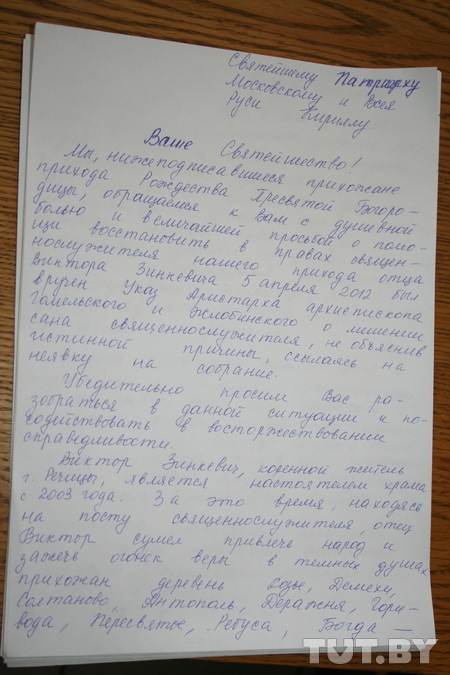 Святейшему Патриарху
Московскому и Всея
Руси Кириллу
Ваше Святейшество!
Мы, нижеподписавшиеся прихожане
прихода Рождества Пресвятой Богоро-
дицы, обращаемся к Вам с душевной
болью и величайшей просьбой о помо-
щи восстановить в правах священ-
нослужителя нашего прихода отца
Виктора Зинкевича. 5 апреля 2012 был
вручен Указ Аристарха архиепископа
Гомельского и Жлобинского о лишении
сана священнослужителя, не объяснив
истинной причины, ссылаясь на
неявку на собрание.
Убедительно просим Вас ра-
зобраться в данной ситуации и по-
содействовать в восторжествовании
справедливости.
Виктор Зинкевич, коренной житель
г. Речицы, является настоятелем храма
с 2003 года. За это время, находясь
на посту священнослужителя, отец
Виктор сумел привлечь народ и
зажечь огонек веры в темных душах
прихожан деревень Озы, Демехи,
Солтаново, Антополь, Деражня, Гори-
вода, Пересвятое, Ребуса, Богда—
TUT.BY